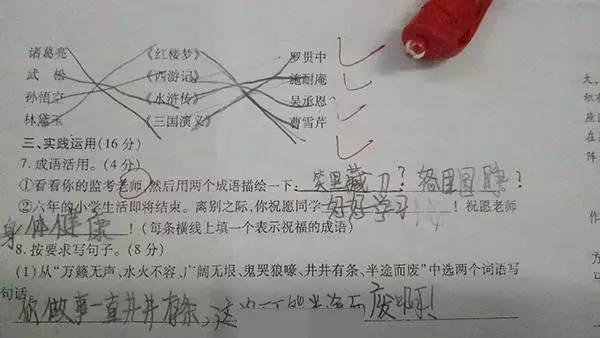 诸葛亮 《红楼梦》 罗贯中
武松 《西游记》 施耐庵
孙悟空 《水浒传》 吴承恩
林黛玉 《三国演义》 曹雪芹
三、实践运用(16分)
7. 成语活用。(4分)
①看看你的监考老师,然后用两个成语描绘一下: 笑里藏刀?
②六年的小学生活即将结束。离别之际,你祝愿同学 好好学习 !祝愿老师
身体健康 !(每条横线上填一个表示祝福的成语)
8. 按要求写句子。(8分)
(1)从“万籁无声、水火不容、广阔无垠、鬼哭狼嚎、井井有条、半途而废”中选两个词语写
句话
你做事一直井井有条,这
大,
积
座
在
阵
作